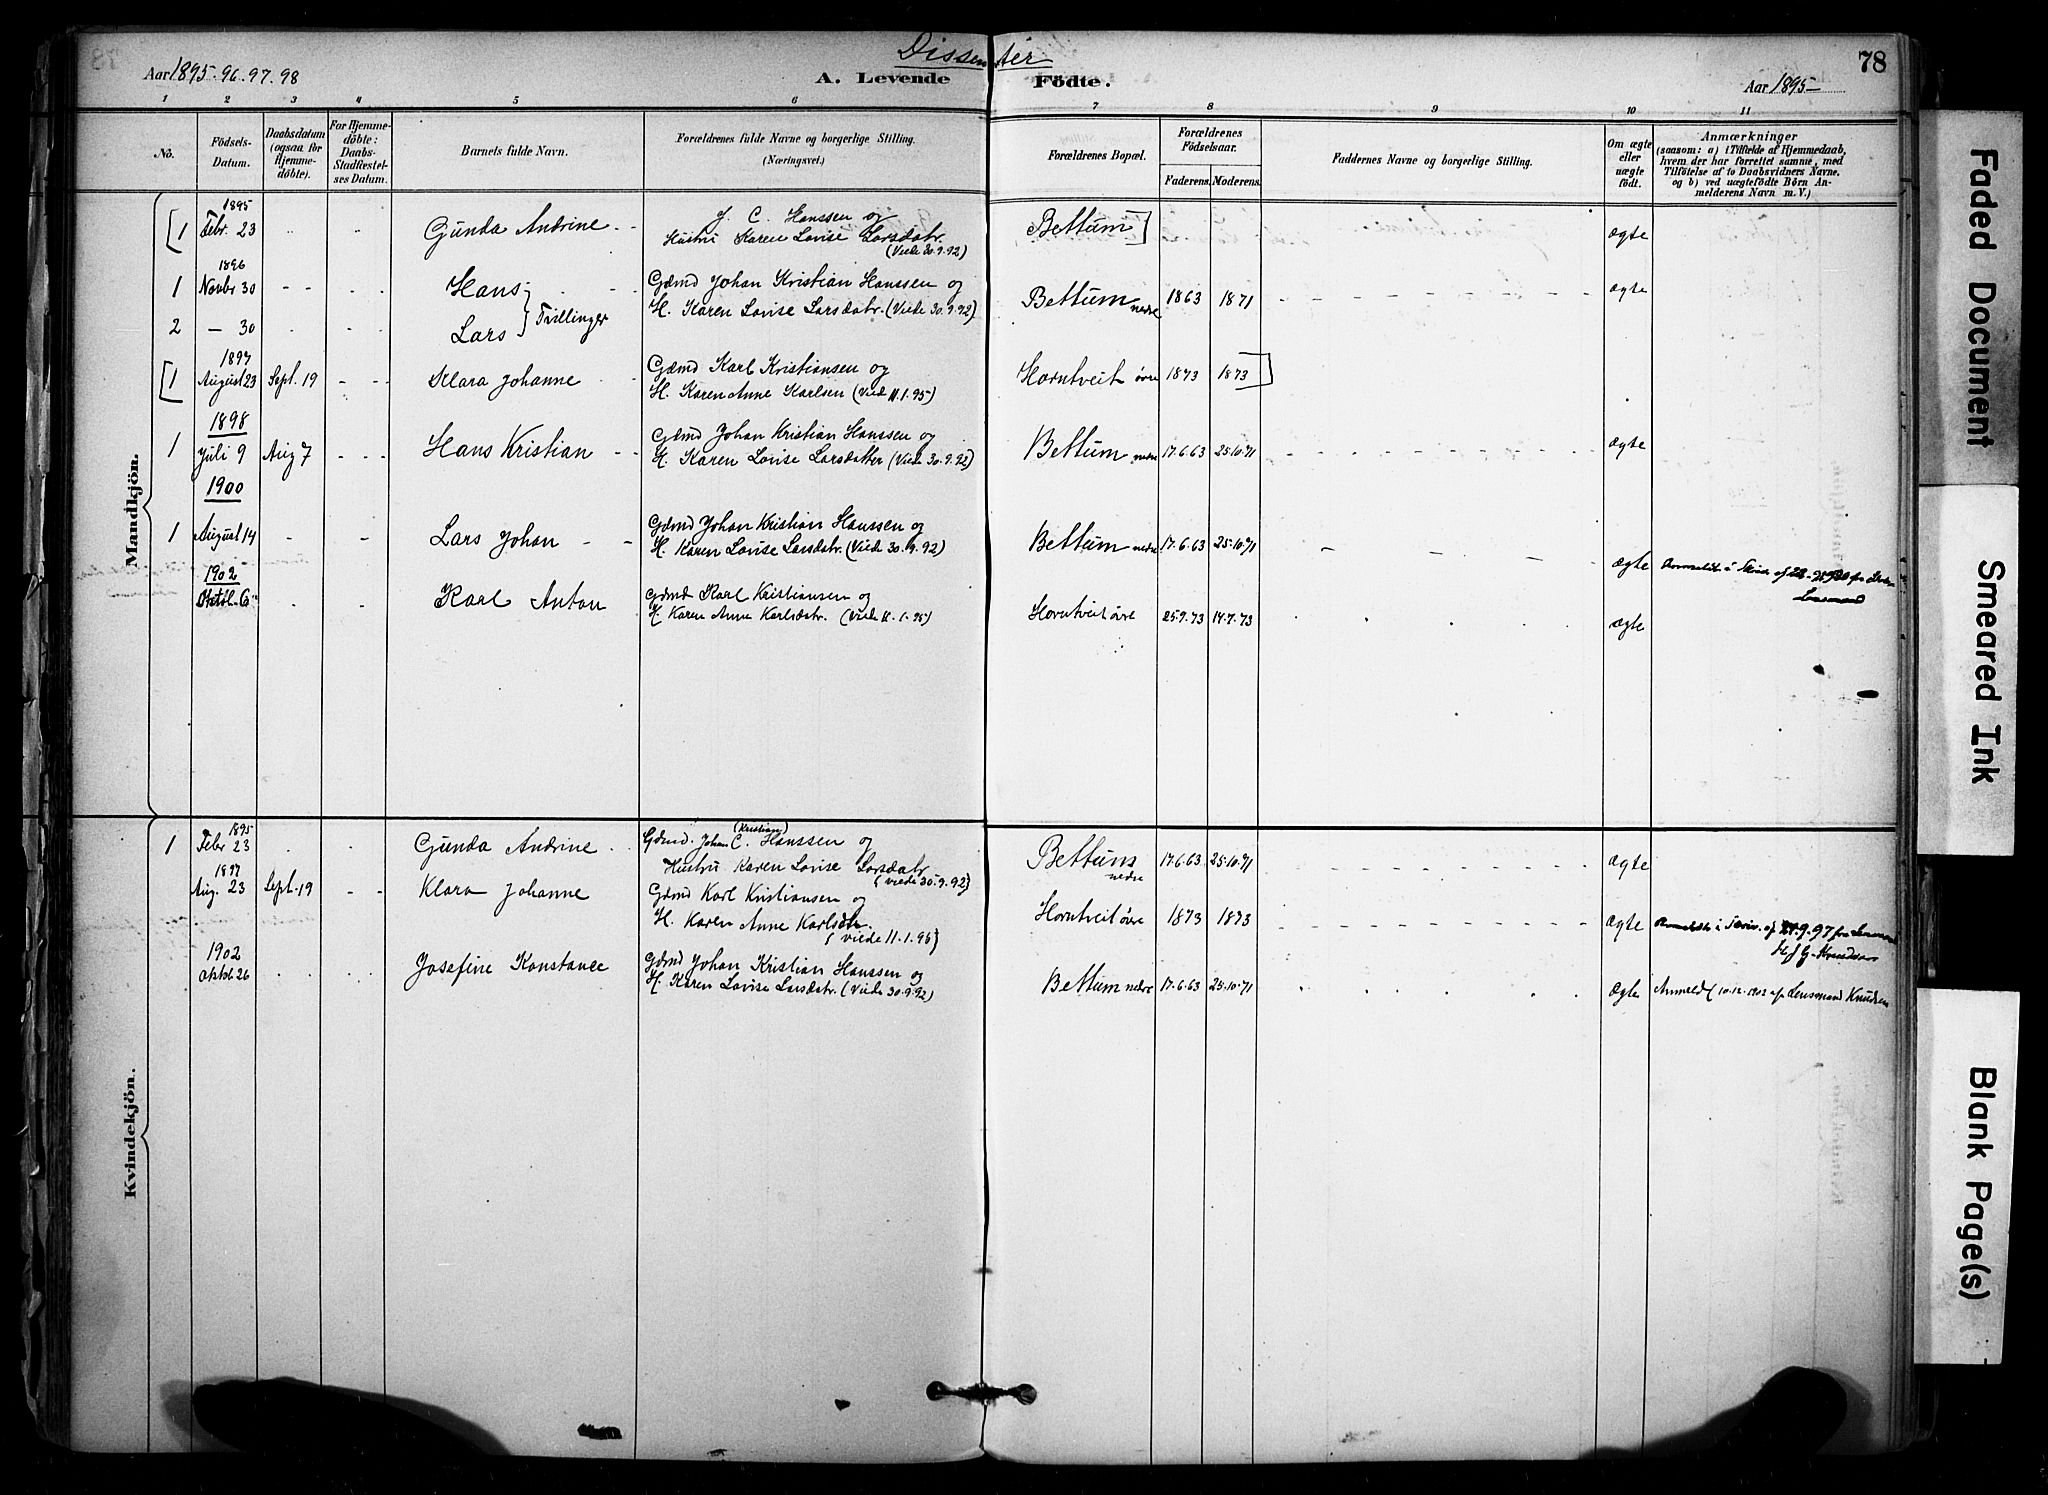 Dissenter
78
Aar 1895-96.97.98
A. Levende Fødte.
Aar 1895-
1 2 3 4 5 6 7 8 9 10 11
No.
Födsels-Datum.
Daabsdatum (ogsaa for Hjemme-döbte).
For Hjemme-döbte: Daabs-Stadfæstel-ses Datum.
Barnets fulde Navn.
Forældrenes fulde Navne og borgerlige Stilling.
(Næringsvei.)
Forældrenes Bopæl.
Forældrenes Födselsaar.
Faderens. Moderens.
Faddernes Navne og borgerlige Stilling.
Om ægte eller uægte födt.
Anmærkninger
(saasom: a) i Tilfælde af Hjemmedaab,
hvem der har forrettet samme, med
Tilföielse af to Daabsvidners Navne.
og b) ved uægtefödte Börn An-
melderens Navn m. V.)
Mandkjön.
1895
[1 Febr. 23 Gunda Andrine J. C. Hanssen og Bettum] ægte
Hustru Karen Lovise Larsdatr.
(Viede 30.9.92)
1896
1 Novbr 30 Hans Gdmd Johan Kristian Hanssen og Bettum nedre 1863 1871 ægte
Tvillinger H. Karen Lovise Larsdatr. (Viede 30.9.92)
2 — 30 Lars
1897
[1 August 23 Sept. 19 Klara Johanne Gdmd Karl Kristiansen og Horntveit øvre 1873 1873] ægte
H. Karen Anne Karlsen (Vied 11.1.95)
1898
1 Juli 9 Aug 7 Hans Kristian Gdmd Johan Kristian Hanssen og Bettum nedre 17.6.63 25.10.71 ægte
H. Karen Lovise Larsdatter (Viede 30.9.92)
1900
1 August 14 Lars Johan Gdmd Johan Kristian Hanssen og Bettum nedre 17.6.63 25.10.71 ægte
H. Karen Lovise Larsdatr. (Viede 30.9.92)
1902
Oktob. 6 Karl Anton Gdmd Karl Kristiansen og Horntveit øvre 25.9.73 14.7.73 ægte
H Karen Anne Karlsdtr. (Viede 11.1.95)
Kvindekjön.
1895
1 Febr 23 Gunda Andrine Gdmd. Johan C. (Kristian) Hanssen og Bettum nedre 17.6.63 25.10.71 ægte
Hustru Karen Lovise Larsdatr
(viede 30.9.92)
1897
Aug. 23 Sept. 19 Klara Johanne Gdmd Karl Kristiansen og Horntveit øvre 1873 1873 ægte
H. Karen Anne Karlsdtr.
(viede 11.1.95)
1902
Oktob 26 Josefine Konstance Gdmd Johan Kristian Hanssen og Bettum nedre 17.6.63 25.10.71 ægte Anmeldt 10.12.1902 af Lensmand Knudsen
H. Karen Lovise Larsdatr. (Viede 30.9.92)
Faded Document
Smeared Ink
Blank Page(s)